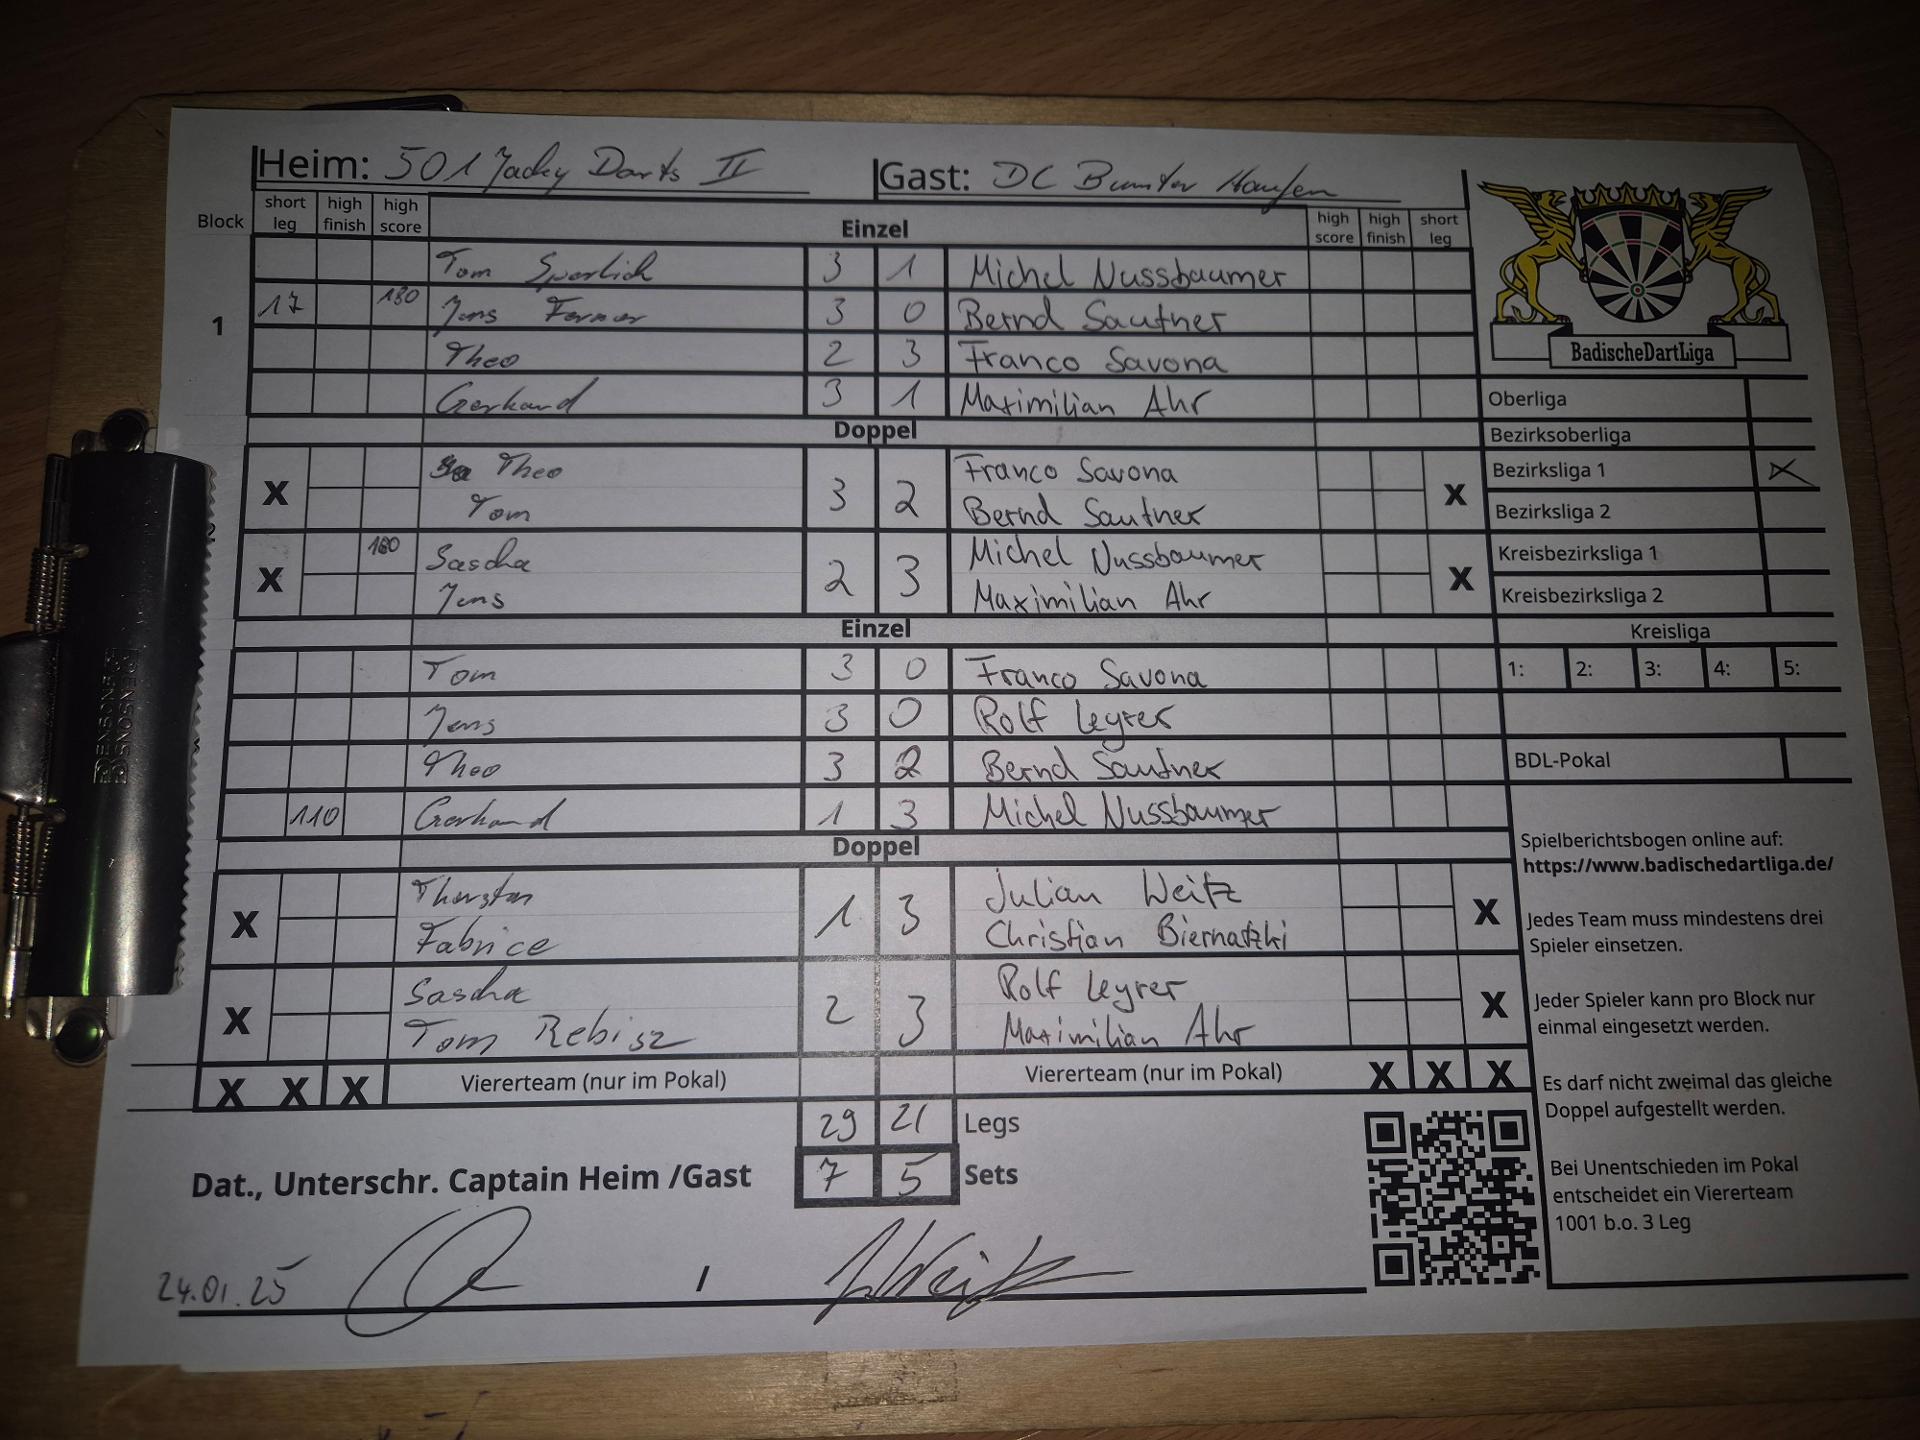 Heim: 501 Jacky Darts II Gast: DC Bunter Haufen
Block short leg high finish high score Einzel high score high finish short leg
Tom Sperlich 3 1 Michel Nussbaumer
1 17 180 Jens Ferner 3 0 Bernd Sautner
Theo 2 3 Franco Savona
Gerhard 3 1 Maximilian Ahr
Doppel
X Theo 3 2 Franco Savona X
Tom Bernd Sautner
X 180 Sascha 2 3 Michel Nussbaumer X
Jens Maximilian Ahr
Einzel
Tom 3 0 Franco Savona
Jens 3 0 Rolf Leyrer
Theo 3 2 Bernd Sautner
110 Gerhard 1 3 Michel Nussbaumer
Doppel
X Thorsten 1 3 Julian Weitz X
Fabrice Christian Biernatzki
X Sascha 2 3 Rolf Leyrer X
Tom Rebisz Maximilian Ahr
X X X Viererteam (nur im Pokal) Viererteam (nur im Pokal) X X X
29 21 Legs
7 5 Sets
Dat., Unterschr. Captain Heim /Gast
24.01.25 /
BadischeDartLiga
Oberliga
Bezirksoberliga
Bezirksliga 1 X
Bezirksliga 2
Kreisbezirksliga 1
Kreisbezirksliga 2
Kreisliga
1: 2: 3: 4: 5:
BDL-Pokal
Spielberichtsbogen online auf:
https://www.badischedartliga.de/
Jedes Team muss mindestens drei
Spieler einsetzen.
Jeder Spieler kann pro Block nur
einmal eingesetzt werden.
Es darf nicht zweimal das gleiche
Doppel aufgestellt werden.
Bei Unentschieden im Pokal
entscheidet ein Viererteam
1001 b.o. 3 Leg
BENSONS
BENSONS